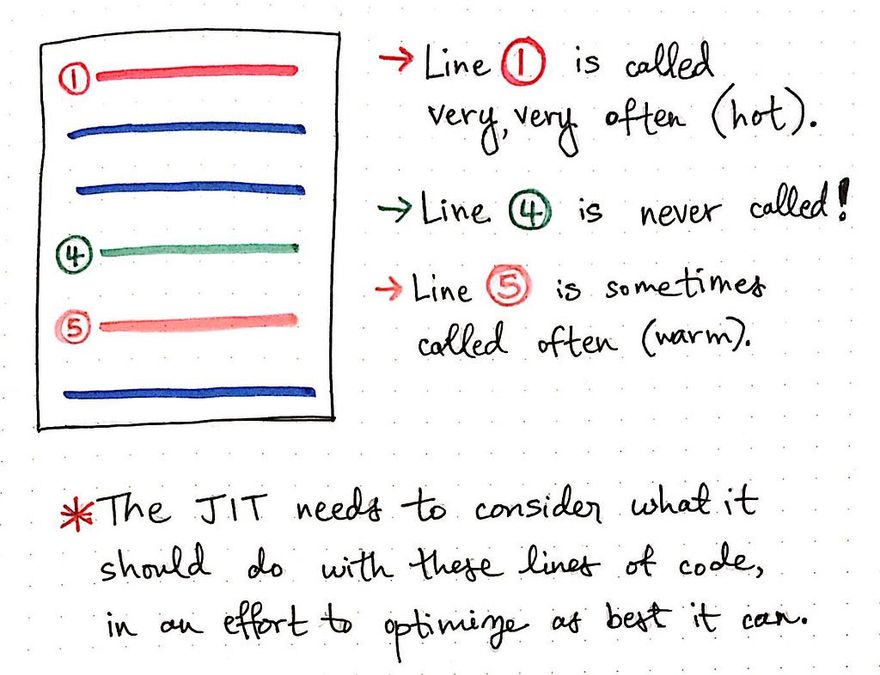 1
4
5
→ Line 1 is called
very, very often (hot).
→ Line 4 is never called!
→ Line 5 is sometimes
called often (warm).
* The JIT needs to consider what it
should do with these lines of code,
in an effort to optimize as best it can.